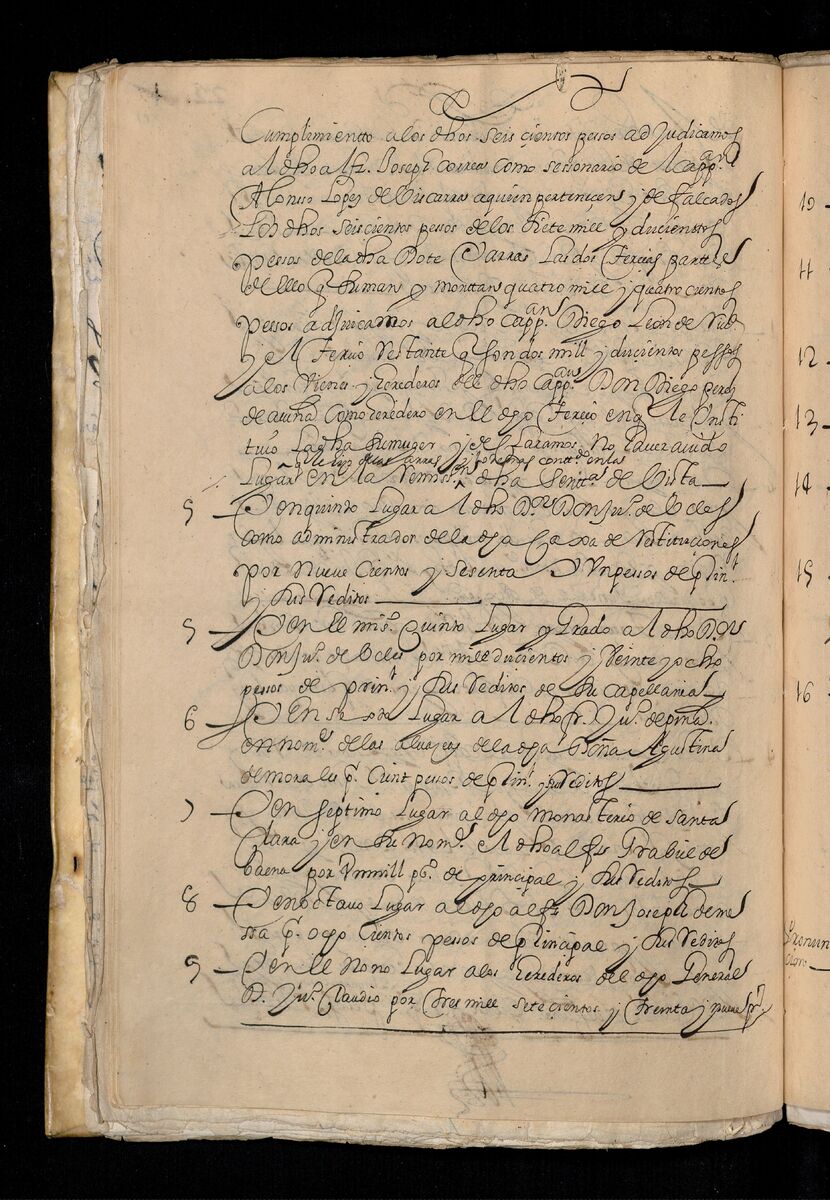 Cumplimientto a los dhos seis çientos pessos adJudicamos
al dho alfz. Joseph correa como sessionario del capp.an
Alonso Lopez de Viscarra a quien perteniçen y de falcados
Los dhos seiscientos pessos de los siete mill y duçienttos
pessos de la dha Dote Y arras Las dos terçias parttes
de ello q suman y monttan quatro mill y quatroçientos
pessos adJuicamos al dho capp.an Diego Leon de
y el terçio restante q son dos mill y duçientos pessos
a los Vienes y erederos del dho capp.an Don Diego perez
de acuña como eredero en el dho terçio en q le insti
tuió La dha su muger y declaramos No aver avido
q le dio de las arras y joyas contt.das en la
Lugar en la Remiss.on dha sent.a de Vista
5 - Y en quinto Lugar al dho D.or Don Ju.o de Ocles
como administrador de la dha Caxa de restituçiones
por Nueve Cientos y sesenta Y Un pessos de prin.l
y sus reditos
5 - Y en el mis.o quinto Lugar y grado al dho D.or
Don Ju.o de Ocles por mill ducientos y Veinte y ocho
pessos de prin.l y sus reditos de su capellania
6 - Y en sexto Lugar al dho fr. Ju.o de pina
en nom.e de las alvaçeas de la dha Doña Agustina
de morales p.r cient pessos de prin.l y sus reditos
7 - Y en septimo Lugar al dho monasterio de santa
Clara y en su nom.e al dho alfz grabiel de
baena por Un mill p.os de principal y sus reditos
8 - Y en octauo Lugar al dho alfz Don Joseph de me
ssa p.r ocho Cientos pessos de principal y sus reditos
9 - Y en el Nono Lugar a los erederos del dho General
D. Ju.o Claudio por tres mill seteçientos y treinta y nueve p.s
10 -
11 -
12 -
13 -
14 -
15 -
16 -